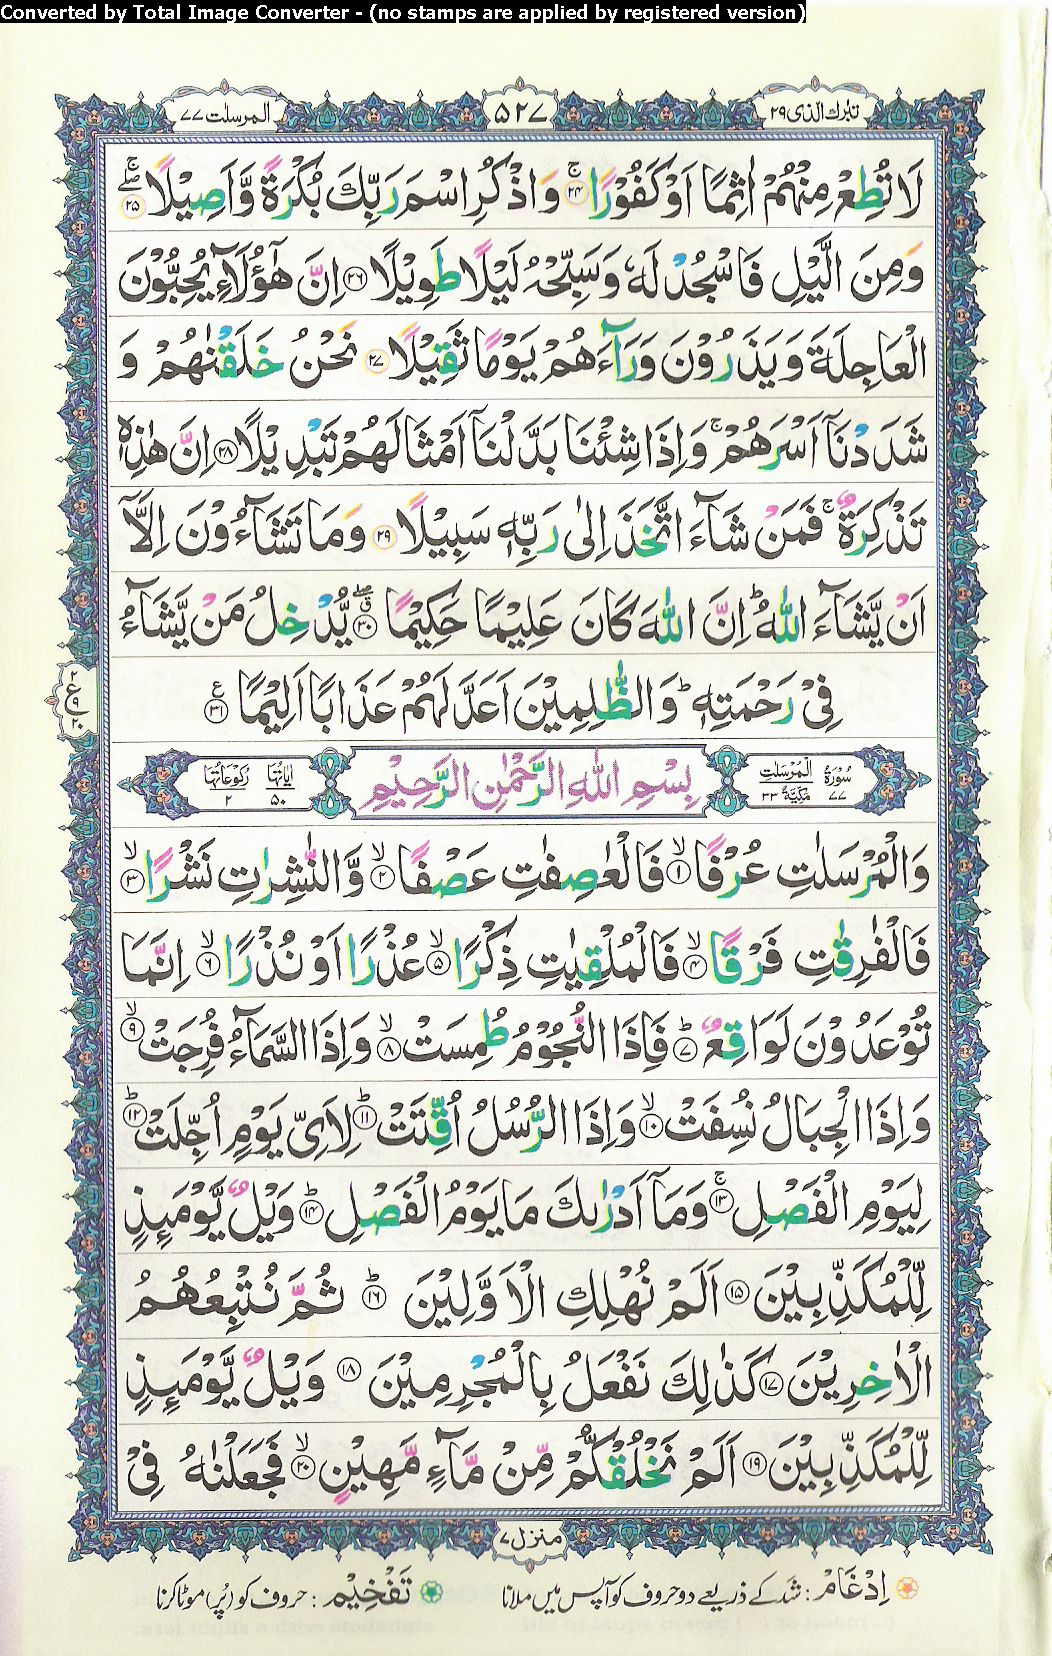 Converted by Total Image Converter - (no stamps are applied by registered version)
تبٰرك الذی ۲۹
۵۲۷
المرسلٰت ۷۷
لَا تُطِعْ مِنْهُمْ اٰثِمًا اَوْ كَفُوْرًا ۚ۲۴ وَاذْكُرِ اسْمَ رَبِّكَ بُكْرَةً وَّاَصِيْلًا ۖۚ۲۵
وَمِنَ الَّيْلِ فَاسْجُدْ لَهٗ وَسَبِّحْهُ لَيْلًا طَوِيْلًا ۲۶ اِنَّ هٰٓؤُلَآءِ يُحِبُّوْنَ
الْعَاجِلَةَ وَيَذَرُوْنَ وَرَآءَهُمْ يَوْمًا ثَقِيْلًا ۲۷ نَحْنُ خَلَقْنٰهُمْ وَ
شَدَدْنَآ اَسْرَهُمْ ۚ وَاِذَا شِئْنَا بَدَّلْنَآ اَمْثَالَهُمْ تَبْدِيْلًا ۲۸ اِنَّ هٰذِهٖ
تَذْكِرَةٌ ۚ فَمَنْ شَآءَ اتَّخَذَ اِلٰى رَبِّهٖ سَبِيْلًا ۲۹ وَمَا تَشَآءُوْنَ اِلَّآ
اَنْ يَّشَآءَ اللّٰهُ ؕ اِنَّ اللّٰهَ كَانَ عَلِيْمًا حَكِيْمًا ۖۗ۳۰ يُّدْخِلُ مَنْ يَّشَآءُ
فِيْ رَحْمَتِهٖ ؕ وَالظّٰلِمِيْنَ اَعَدَّ لَهُمْ عَذَابًا اَلِيْمًا ۳۱ ع
ع ۲ ۹ ۲۰
سُوْرَةُ ۷۷ الْمُرْسَلٰتِ مَكِّيَّةٌ ۳۳
بِسْمِ اللّٰهِ الرَّحْمٰنِ الرَّحِيْمِ
اٰيَاتُهَا ۵۰ رُكُوْعَاتُهَا ۲
وَالْمُرْسَلٰتِ عُرْفًا ۙ۱ فَالْعٰصِفٰتِ عَصْفًا ۙ۲ وَّالنّٰشِرٰتِ نَشْرًا ۙ۳
فَالْفٰرِقٰتِ فَرْقًا ۙ۴ فَالْمُلْقِيٰتِ ذِكْرًا ۙ۵ عُذْرًا اَوْ نُذْرًا ۙ۶ اِنَّمَا
تُوْعَدُوْنَ لَوَاقِعٌ ؕ۷ فَاِذَا النُّجُوْمُ طُمِسَتْ ۙ۸ وَاِذَا السَّمَآءُ فُرِجَتْ ۙ۹
وَاِذَا الْجِبَالُ نُسِفَتْ ۙ۱۰ وَاِذَا الرُّسُلُ اُقِّتَتْ ؕ۱۱ لِاَيِّ يَوْمٍ اُجِّلَتْ ؕ۱۲
لِيَوْمِ الْفَصْلِ ۚ۱۳ وَمَآ اَدْرٰىكَ مَا يَوْمُ الْفَصْلِ ؕ۱۴ وَيْلٌ يَّوْمَىِٕذٍ
لِّلْمُكَذِّبِيْنَ ۱۵ اَلَمْ نُهْلِكِ الْاَوَّلِيْنَ ؕ۱۶ ثُمَّ نُتْبِعُهُمُ
الْاٰخِرِيْنَ ۱۷ كَذٰلِكَ نَفْعَلُ بِالْمُجْرِمِيْنَ ۱۸ وَيْلٌ يَّوْمَىِٕذٍ
لِّلْمُكَذِّبِيْنَ ۱۹ اَلَمْ نَخْلُقْكُّمْ مِّنْ مَّآءٍ مَّهِيْنٍ ۙ۲۰ فَجَعَلْنٰهُ فِيْ
منزل ۷
اِدْغَام : شد کے ذریعے دو حروف کو آپس میں ملانا
تَفْخِيْم : حروف کو (پُر) موٹا کرنا